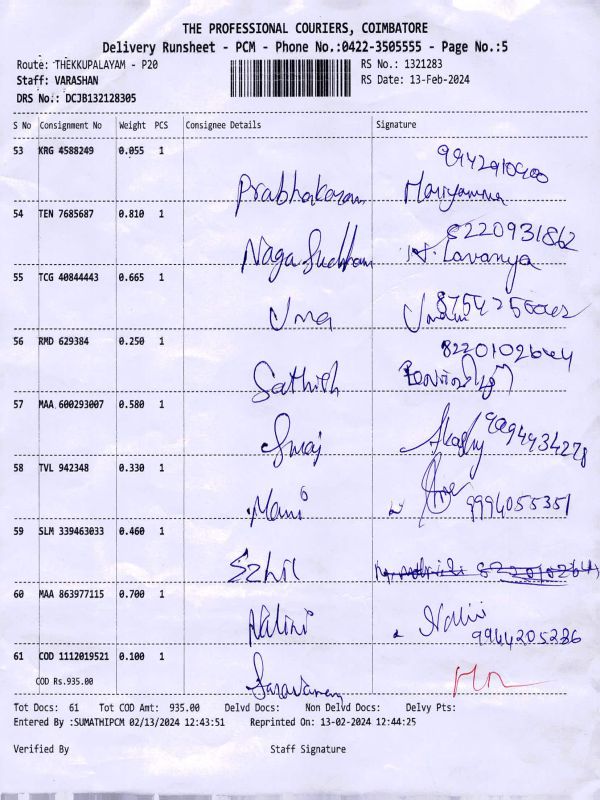 THE PROFESSIONAL COURIERS, COIMBATORE
Delivery Runsheet - PCM - Phone No.:0422-3505555 - Page No.:5
Route: THEKKUPALAYAM - P20 RS No.: 1321283
Staff: VARASHAN RS Date: 13-Feb-2024
DRS No.: DCJB132128305
S No Consignment No Weight PCS Consignee Details Signature
53 KRG 4588249 0.055 1
Prabhakaran Mariyamma
54 TEN 7685687 0.810 1 8220931862
Naga Sudhan N. Lavanya
55 TCG 40844443 0.665 1
Uma
56 RMD 629384 0.250 1
Sathish
57 MAA 600293007 0.580 1
58 TVL 942348 0.330 1
Mani 9994055351
59 SLM 339463033 0.460 1
Ezhil
60 MAA 863977115 0.700 1
Nalini Nalini
9944205286
61 COD 1112019521 0.100 1
COD Rs.935.00
Saravanan
Tot Docs: 61 Tot COD Amt: 935.00 Delvd Docs: Non Delvd Docs: Delvy Pts:
Entered By :SUMATHIPCM 02/13/2024 12:43:51 Reprinted On: 13-02-2024 12:44:25
Verified By Staff Signature